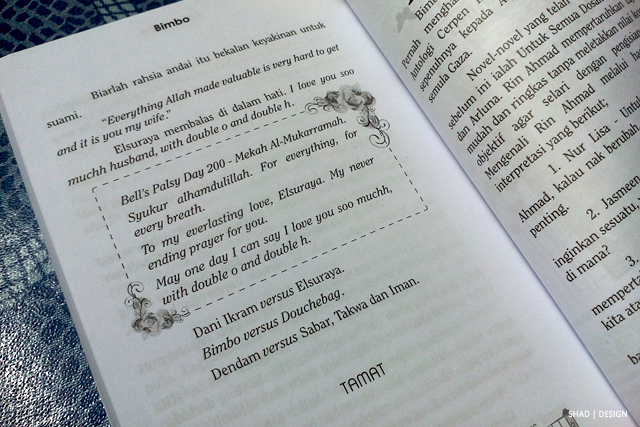 Bimbo
Biarlah rahsia andai itu bekalan keyakinan untuk
suami.
"Everything Allah made valuable is very hard to get
and it is you my wife."
Elsuraya membalas di dalam hati. I love you soo
muchh husband, with double o and double h.
Bell's Palsy Day 200 - Mekah Al-Mukarramah.
Syukur alhamdulillah. For everything, for
every breath.
To my everlasting love, Elsuraya. My never
ending prayer for you.
May one day I can say I love you soo muchh,
with double o and double h.
Dani Ikram versus Elsuraya.
Bimbo versus Douchebag.
Dendam versus Sabar, Takwa dan Iman.
TAMAT
Pernah mengha
Antologi Cerpen
sepenuhnya kepada A
semula Gaza.
Novel-novel yang telah
sebelum ini ialah Untuk Semua Dosa
dan Arluna. Rin Ahmad mempertaruhkan
mudah dan ringkas tanpa meletakkan nilai
objektif agar selari dengan pengisian
Mengenali Rin Ahmad melalui
interpretasi yang berikut;
1. Nur Lisa - Un
Ahmad, kalau nak beruba
penting.
2. Jasmeen
inginkan sesuatu,
di mana?
3.
memperta
kita ata
ba
SHAD | DESIGN